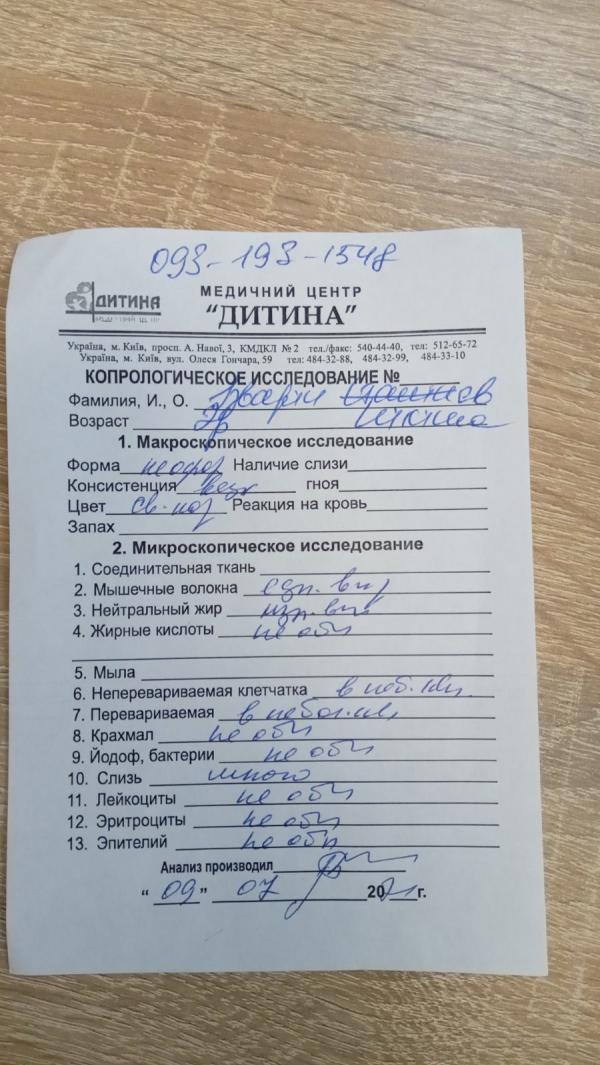 093-193-1548
ДИТИНА
МЕДИЧНИЙ ЦЕНТР
"ДИТИНА"
Україна, м. Київ, просп. А. Навої, 3, КМДКЛ № 2 тел./факс: 540-44-40, тел: 512-65-72
Україна, м. Київ, вул. Олеся Гончара, 59 тел: 484-32-88, 484-32-99, 484-33-10
КОПРОЛОГИЧЕСКОЕ ИССЛЕДОВАНИЕ №
Фамилия, И., О.
Возраст
1. Макроскопическое исследование
Форма неофор Наличие слизи
Консистенция вязк гноя
Цвет св. кор Реакция на кровь
Запах
2. Микроскопическое исследование
1. Соединительная ткань
2. Мышечные волокна
3. Нейтральный жир
4. Жирные кислоты не обн
5. Мыла
6. Непереваривaемая клетчатка в неб. кол.
7. Перевариваемая в небол. кол.
8. Крахмал не обн
9. Йодоф, бактерии не обн
10. Слизь много
11. Лейкоциты не обн
12. Эритроциты не обн
13. Эпителий не обн
Анализ производил
" 09 " 07 2021 г.